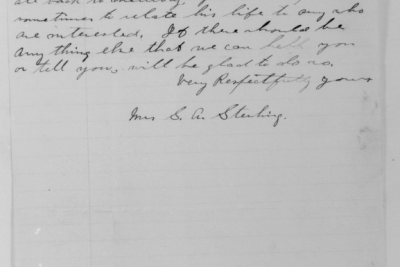 sometimes to relate his life to any who
are interested. If there should be
any thing else that we can help you
or tell you, will be glad to do so.
Very Respectfully yours
Mrs S. A. Sterling.